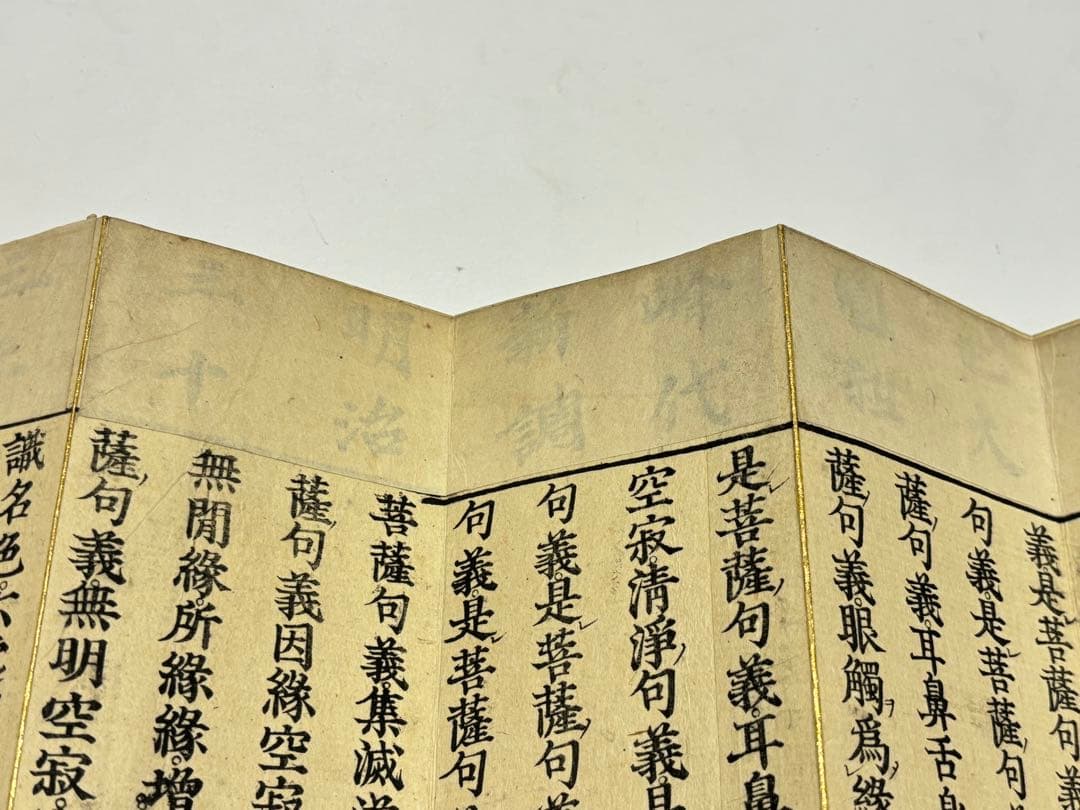 峰代
新調
明治
三十
義是菩薩句義
句義。是菩薩句
薩句義。耳鼻舌
薩句義。眼觸爲緣
是菩薩句義。耳鼻
空寂。清淨句義。是
句義。是菩薩句義
句義。是菩薩句
菩薩句義集滅
薩句義因緣空寂
無閒緣。所緣緣。增
薩句義。無明空寂。
識名色。六